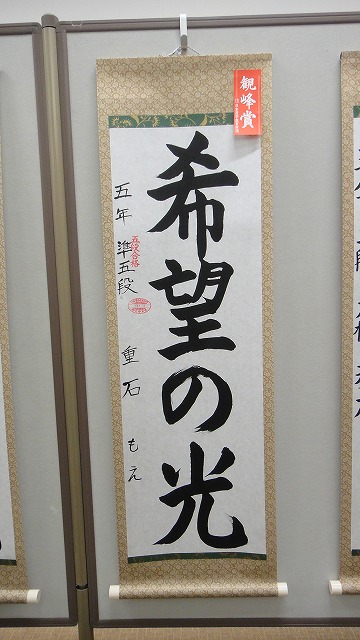 観峰賞
希望の光
五年 準五段 重石 もえ
五段合格